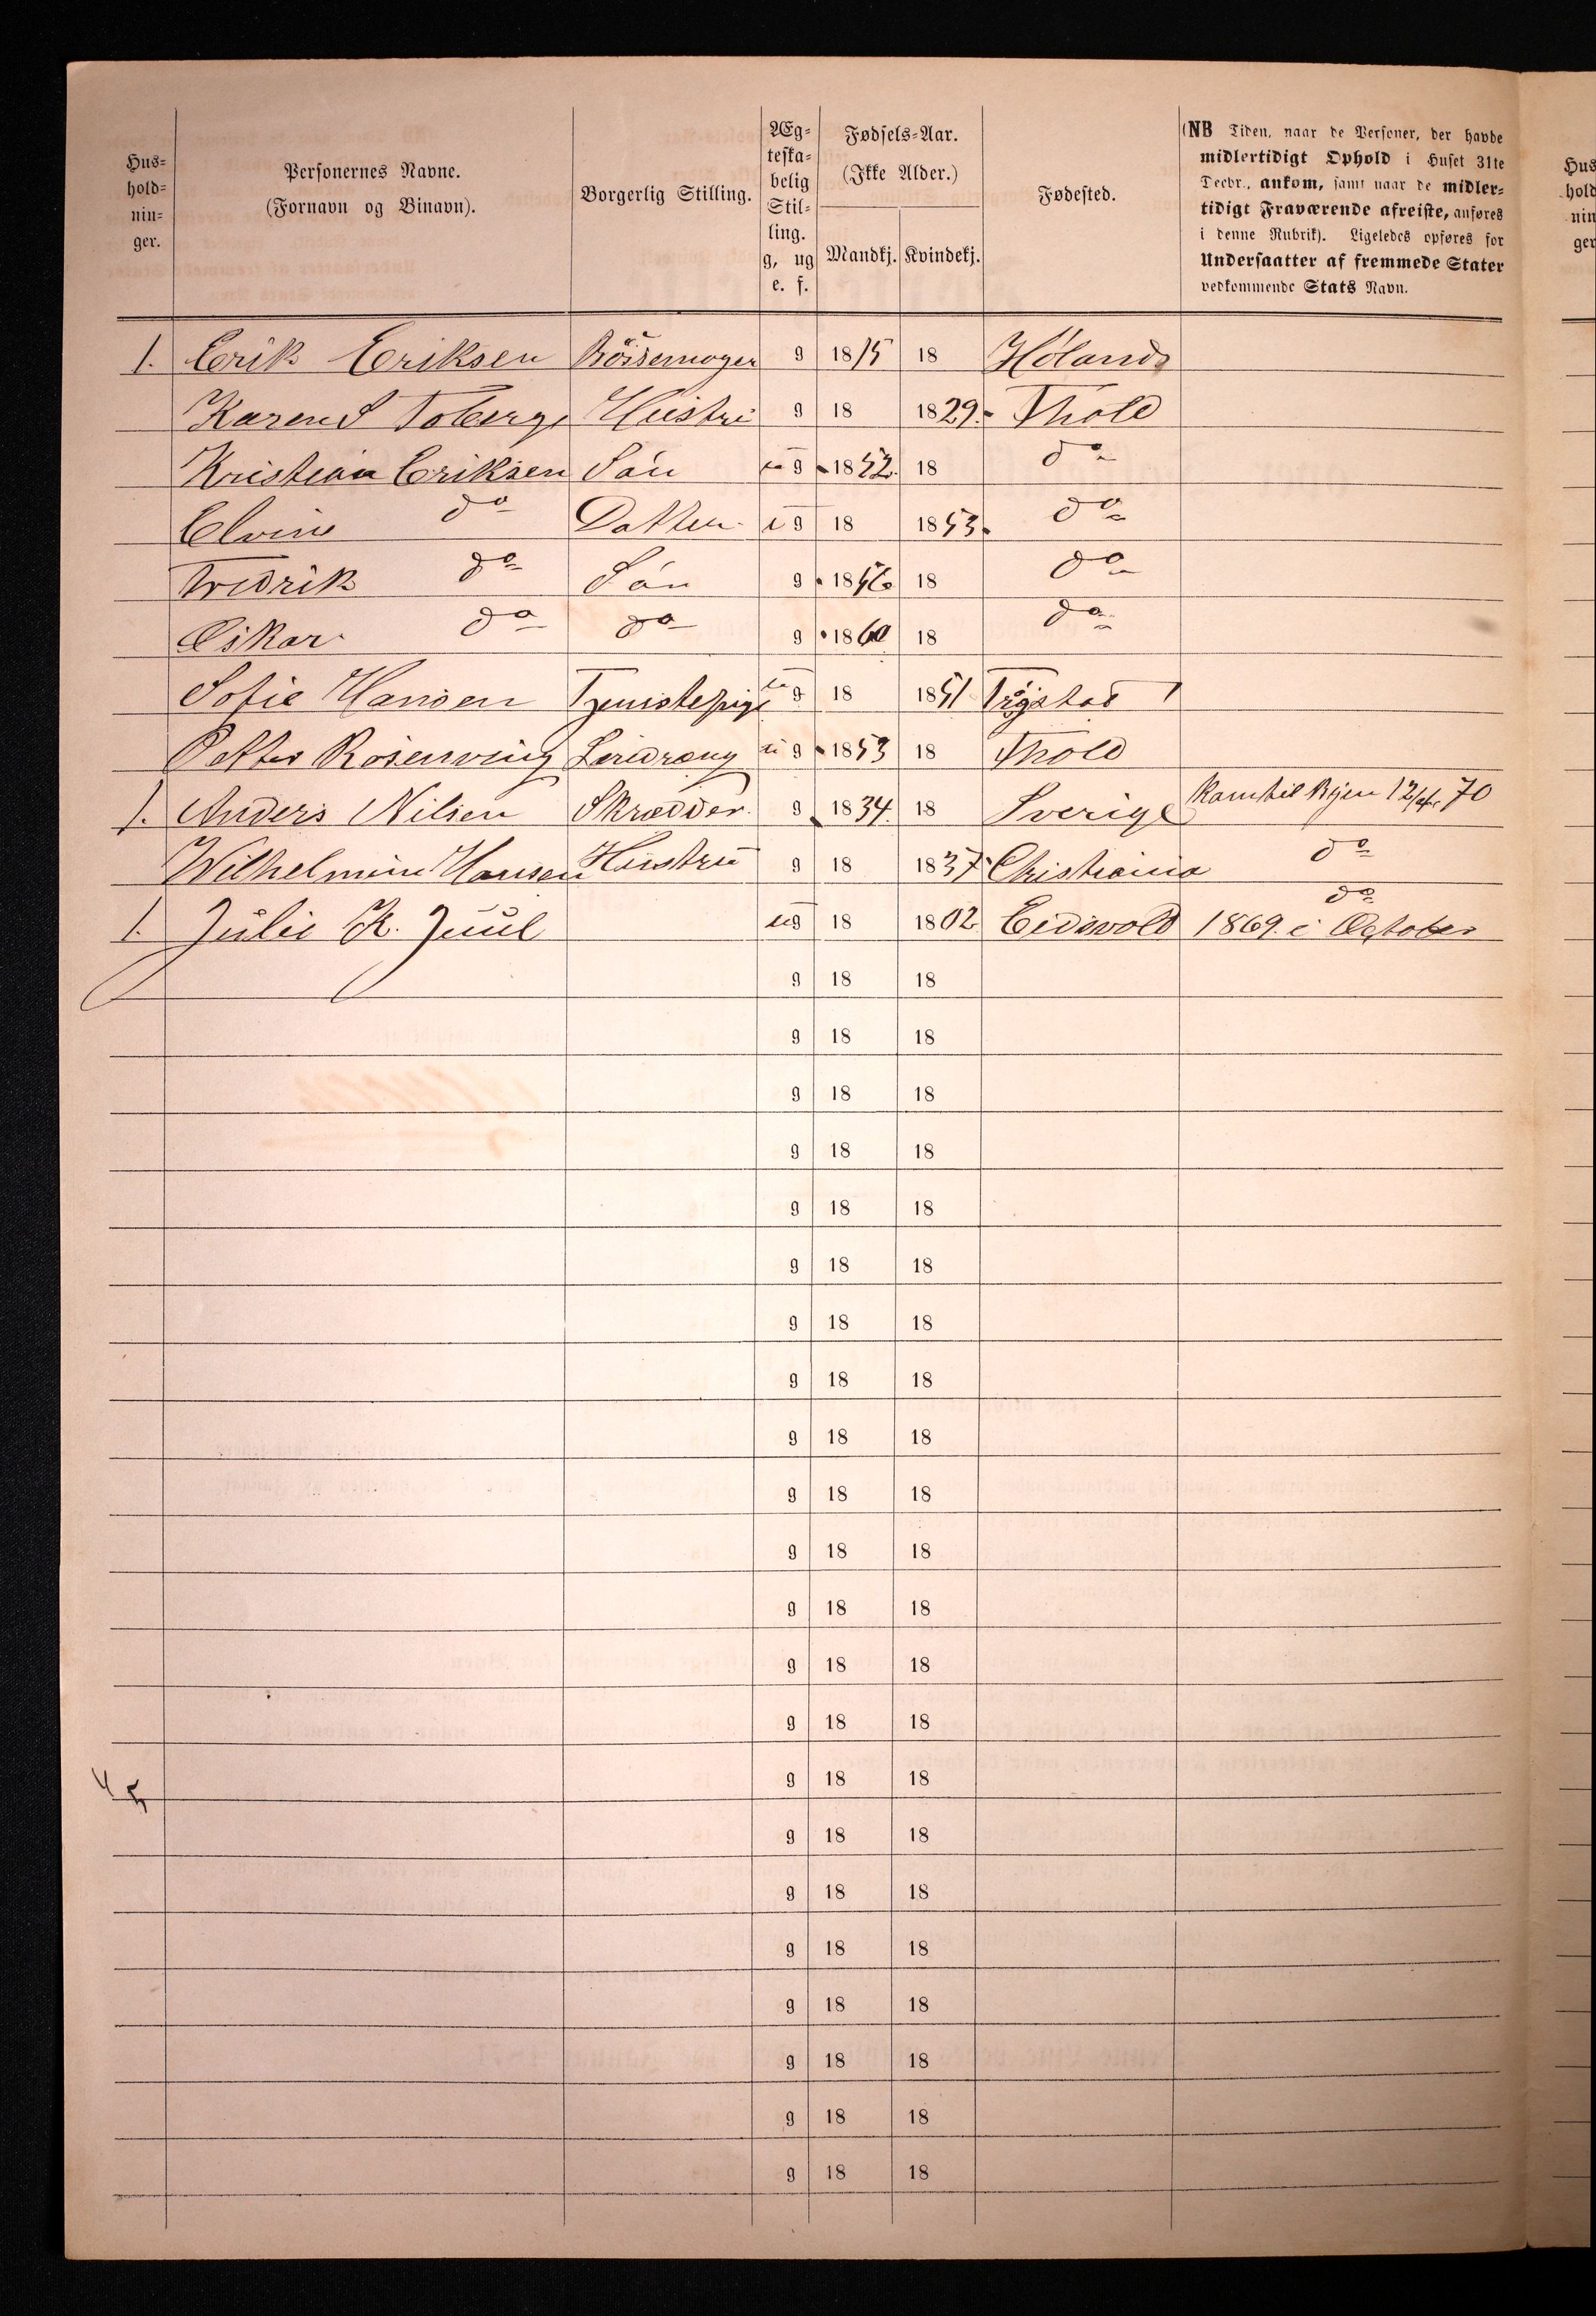 Hus-
hold-
nin-
ger.
Personernes Navne.
(Fornavn og Binavn).
Borgerlig Stilling.
Æg-
teska-
belig
Stil-
ling.
g, ug
e. f.
Fødsels-Aar.
(Ikke Alder.)
Mandkj. Kvindekj.
Fødested.
(NB Tiden, naar de Personer, der havde
midlertidigt Ophold i Huset 31te
Decbr., ankom, samt naar de midler-
tidigt Fraværende afreiste, anføres
i denne Rubrik). Ligeledes opføres for
Undersaatter af fremmede Stater
vedkommende Stats Navn.
1. Erik Eriksen Bössemager g 1815 18 Höland
Karen S Toberge Hustru g 18 1829 Thold
Kristian Eriksen Sön ug 1852 18 do
Elvine do Datter ug 18 1853 do
Fredrik do Sön g 1856 18 do
Oskar do do g 1860 18 do
Sofie Hansen Tjenstepige ug 18 1851 Trögstad
Petter Rosenving Leredreng ug 1853 18 Thold
1. Anders Nilsen Skrædder g 1834 18 Sverige kam til Byen 12/4 70
Wilhelmine Hansen Hustru g 18 1837 Christiania do
do
1. Julie K. Juul ug 18 1802 Eidsvold 1869 i October
g 18 18
g 18 18
g 18 18
g 18 18
g 18 18
g 18 18
g 18 18
g 18 18
g 18 18
g 18 18
g 18 18
g 18 18
g 18 18
g 18 18
g 18 18
g 18 18
g 18 18
g 18 18
g 18 18
g 18 18
g 18 18
g 18 18